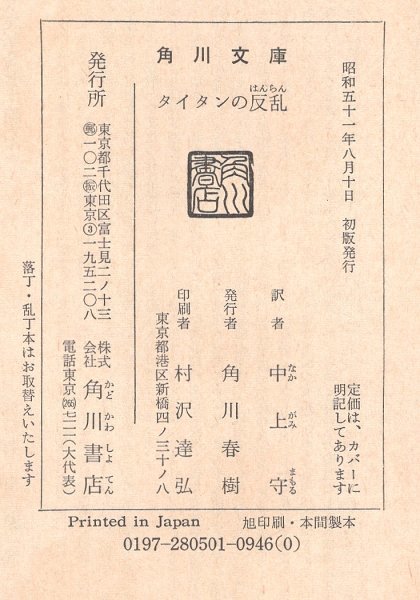 角川文庫
タイタンの反乱
はんらん
昭和五十一年八月十日 初版発行
定価は、カバーに
明記してあります
訳者 中上守
なか がみ まもる
発行者 角川春樹
印刷者 村沢達弘
東京都港区新橋四ノ三十ノ八
発行所 株式会社 角川書店
かど かわ しょ てん
東京都千代田区富士見二ノ十三
一〇二 東京③一九五二〇八
電話東京 七一一(大代表)
落丁・乱丁本はお取替えいたします
角川書店
Printed in Japan 旭印刷・本間製本
0197-280501-0946(0)